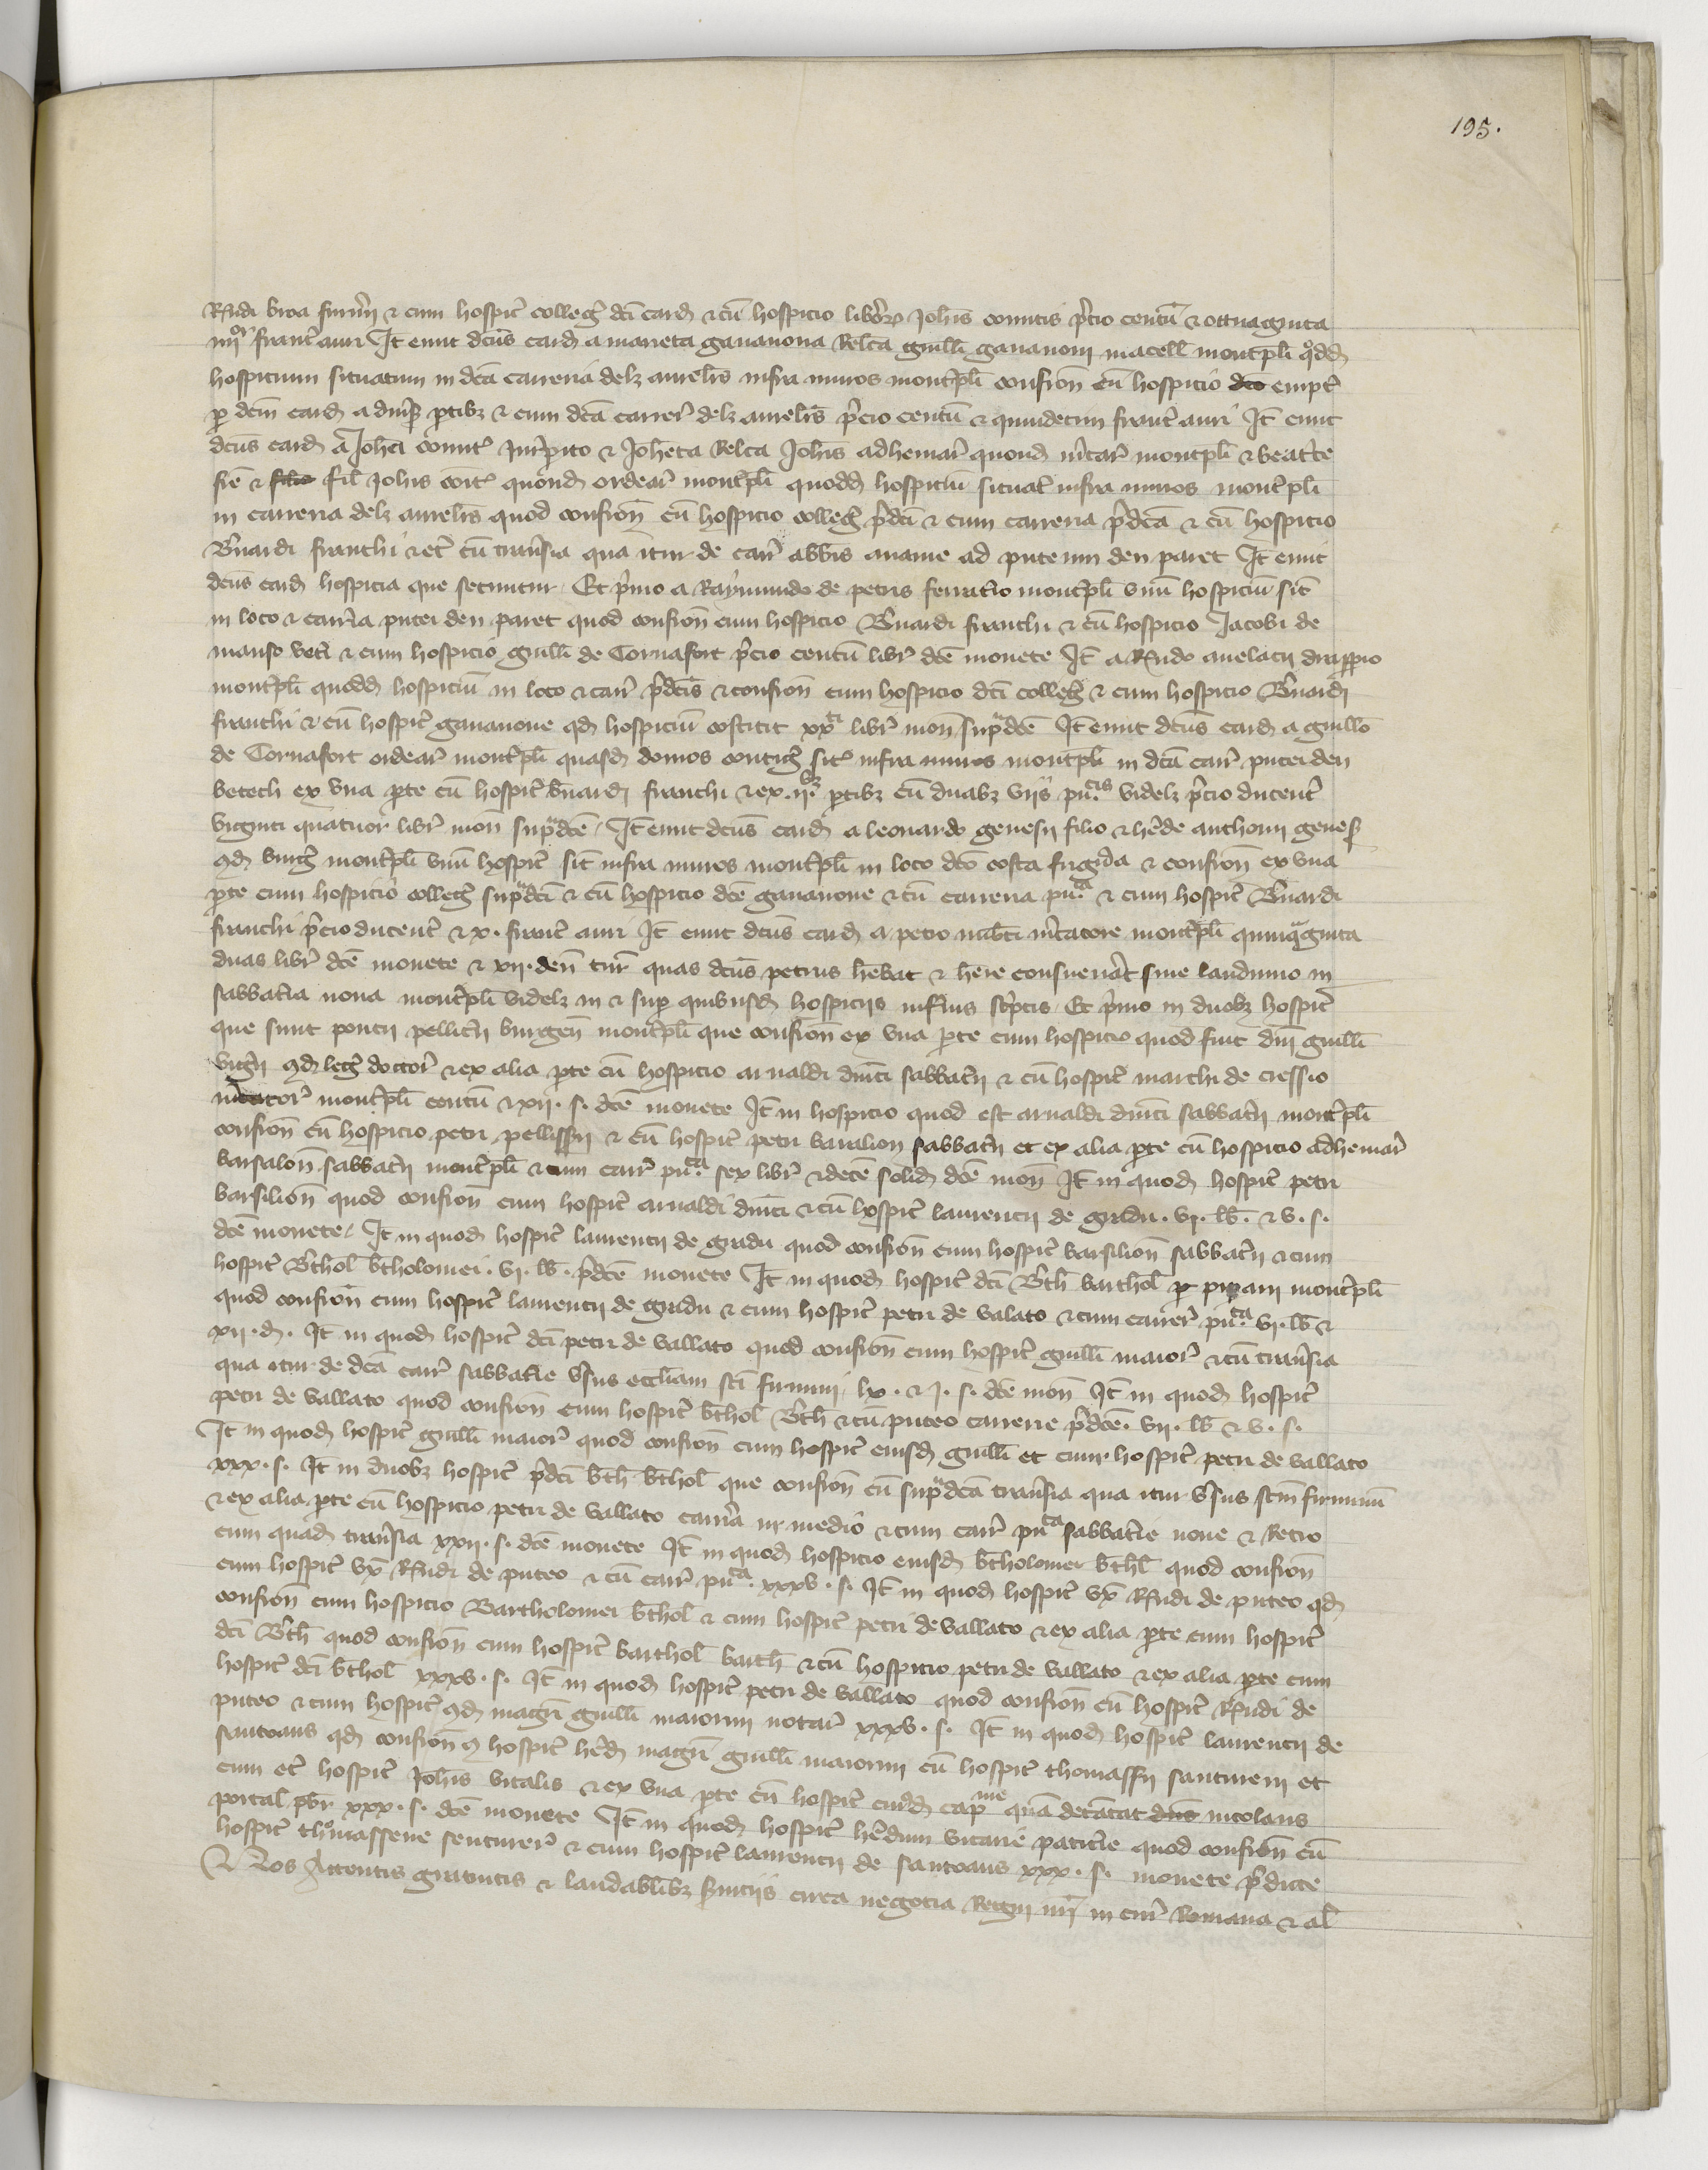 195.
Rndi broa furnerii & cum hospic̃ colleg̃ dc̃i card & cũ hospicio libroꝝ Johĩs comitis p̃cio centũ & octuaginta
iiijor franc̃ auri It̃ emit dc̃us card a maneta gavanona Relc̃a guill̃i gavanoni macell̃ montp̃li qdd
hospicium situatum in dc̃a carreria delz aurelers infra muros montp̃li confron̄ cũ hospicio dc̃o empt̃
p dc̃m card a divs̃ ptibȝ & cum dc̃a carrer̃ delz aurelers p̃cio centũ & quindecim franc̃ auri It̃ emit
dc̃us card a Joh̃a comit̃ & Joh̃eta Relc̃a Joh̃is adhemar̃ quond m̃cat̃ montp̃li & beatc̃e
sie & filie fil̃ Joh̃is com̃t quond ordear̃ montp̃li quodd hospiciũ situat̃ infra muros montp̃li
in carreria delz aurelers quod confron̄ cũ hospicio colleg̃ p̃dc̃i & cum carreria p̃dc̃a & cũ hospicio
B̃nardi franchi & et̃ cũ traṽsia qua itur de carr̃ abb̃is aniane ad puteum den paret It̃ emit
dc̃us card hospicia que secuntur Et p̃mo a Raymundo de petris ferratr̃o montp̃li vnũ hospiciũ sit̃
in loco & carr̃ia putei den paret quod confron̄ cum hospicio B̃nardi franchi & cũ hospicio Jacobi de
manso vet̃i & cum hospicio guill̃i de Cornafort p̃cio centũ libr̃ dc̃e monete It̃ a Rndo avelacii drapp̃io
montp̃li quodd hospiciũ in loco & carr̃ p̃dc̃is & confron̄ cum hospicio dc̃i colleg̃ & cum hospicio B̃nardi
franchi & cũ hospic̃ gavanone qd hospiciũ costitit xxti libr̃ mon̄ sup̃dc̃e It̃ emit dc̃us card a guill̃o
de Cornafort ordear̃ montp̃li quasd domos contig̃ sit̃ infra muros montp̃li in dc̃a carr̃ putei den
betech ex vna pte cũ hospic̃ b̃nardi franchi & ex ijbȝ ptibȝ cũ duabȝ viis pu.cis videlȝ p̃cio ducent̃
viginti quatuor libr̃ mon̄ sup̃dc̃e It̃ emit dc̃us card a leonardo genesii filio & h̃ede anthonii genes̃
qd burg̃ montp̃li vnũ hospic̃ sit̃ infra muros montp̃li in loco dc̃o costa frigida & confron̄ ex vna
pte cum hospicio colleg̃ sup̃dc̃i & cũ hospicio dc̃e gavanone & cũ carreria pu.ca & cum hospic̃ B̃nardi
franchi p̃cio ducent̃ & x. franc̃ auri It̃ emit dc̃us card a petro m̃catore montp̃li quinquaginta
duas libr̃ dc̃e monete & xij. den̄ tur̃ quas dc̃us petrus h̃ebat & h̃ere consueverat sine laudimio in
sabbat̃ia nova montp̃li videlȝ in & sup quibusd hospiciis infrius sc̃ptis Et p̃mo in duobȝ hospic̃
que sunt poncii pellic̃ii burgen̄ montp̃li que confron̄ ex vna pte cum hospicio quod fuit dñi guill̃i
vigr̃ii qd leg̃ doctor̃ & ex alia pte cũ hospicio arnaldi dñici sabbat̃ii & cũ hospic̃ marchi de cressio
m̃cator̃ montp̃li centũ & xij. s. dc̃e monete It̃ in hospicio quod est arnaldi dñici sabbat̃ii montp̃li
confron̄ cũ hospicio petri pellissrii & cũ hospic̃ petri barsilion sabbat̃ii et ex alia pte cũ hospicio adhemar̃
barsalon̄ sabbat̃ii montp̃li & cum carr̃ pu.ca sex libr̃ & decẽ solid dc̃e mon̄ It̃ in quod hospic̃ petri
barsilion̄ quod confron̄ cum hospic̃ arnaldi dñici & cũ hospic̃ laurencii de gradu. vj. lb̃. & v. s.
dc̃e monete It̃ in quod hospic̃ laurencii de gradu quod confron̄ cum hospic̃ barsilion̄ sabbat̃ii & cum
hospic̃ B̃thol̃ b̃tholomei. vj. lb̃. p̃dc̃e monete It̃ in quod hospic̃ dc̃i B̃th̃ barthol̃ montp̃li
quod confron̄ cum hospic̃ laurencii de gradu & cum hospic̃ petri de valato & cum carrer̃ pu.ca vj. lb̃ &
xij. d. It̃ in quod hospic̃ dc̃i petri de vallato quod confron̄ cum hospic̃ guill̃i maior̃ & cũ traṽsia
qua itur de dc̃a carr̃ sabbat̃ie ṽsus eccl̃iam sc̃i firmini lx. & j. s. dc̃e mon̄ It̃ in quod hospic̃
petri de vallato quod confron̄ cum hospic̃ b̃thol̃ B̃th̃ & cũ puteo carrerie p̃dc̃e. vij. lb̃ & v. s.
It̃ in quod hospic̃ guill̃i maior̃ quod confron̄ cum hospic̃ eiusd guill̃i et cum hospic̃ petri de vallato
xxx. s. It̃ in duobȝ hospic̃ p̃dc̃i b̃th̃ b̃thol̃ que confron̄ cũ sup̃dc̃a traṽsia qua itur ṽsus sc̃m firminũ
& ex alia pte cũ hospicio petri de vallato carr̃ia in medio & cum carr̃ pu.ca sabbat̃ie nove & Retro
cum quad traṽsia xxij. s. dc̃e monete It̃ in quod hospicio eiusd b̃tholomei b̃thl̃ quod confron̄
cum hospic̃ vx̃ Rndi de puteo & cũ carr̃ pu.ca xxxv. s. It̃ in quod hospic̃ vx̃ Rndi de puteo qd
confron̄ cum hospicio Bartholomei b̃thol̃ & cum hospic̃ petri de vallato & ex alia pte cum hospic̃
dc̃i B̃th̃ quod confron̄ cum hospic̃ barthol̃ barth̃ & cũ hospicio petri de vallato & ex alia pte cum
hospic̃ dc̃i b̃thol̃ xxxv. s. It̃ in quod hospic̃ petri de vallato quod confron̄ cũ hospic̃ Rndi de
puteo & cum hospic̃ qd magr̃i guill̃i maiorini notar̃ xxxv. s. It̃ in quod hospic̃ laurencii de
santoans qd confron̄ hospic̃ h̃ed magr̃i guill̃i maiorini cũ hospic̃ thomassii santureni et
cum et̃ hospic̃ Joh̃is vitalis & ex vna pte cũ hospic̃ cuiusd cap̃nie quã detentat dñs nicolaus
portal̃ pbr̃ xxx. s. dc̃e monete It̃ in quod hospic̃ h̃edum quod confron̄ cũ
hospic̃ thomassene senturer̃ & cum hospic̃ laurencii de santoans xxx. s. monete p̃dicte
Nos Attentis gratuitis & laudabil̃ibȝ s̃viciis circa negocia Regni nr̃i in cur̃ Romana & al̃